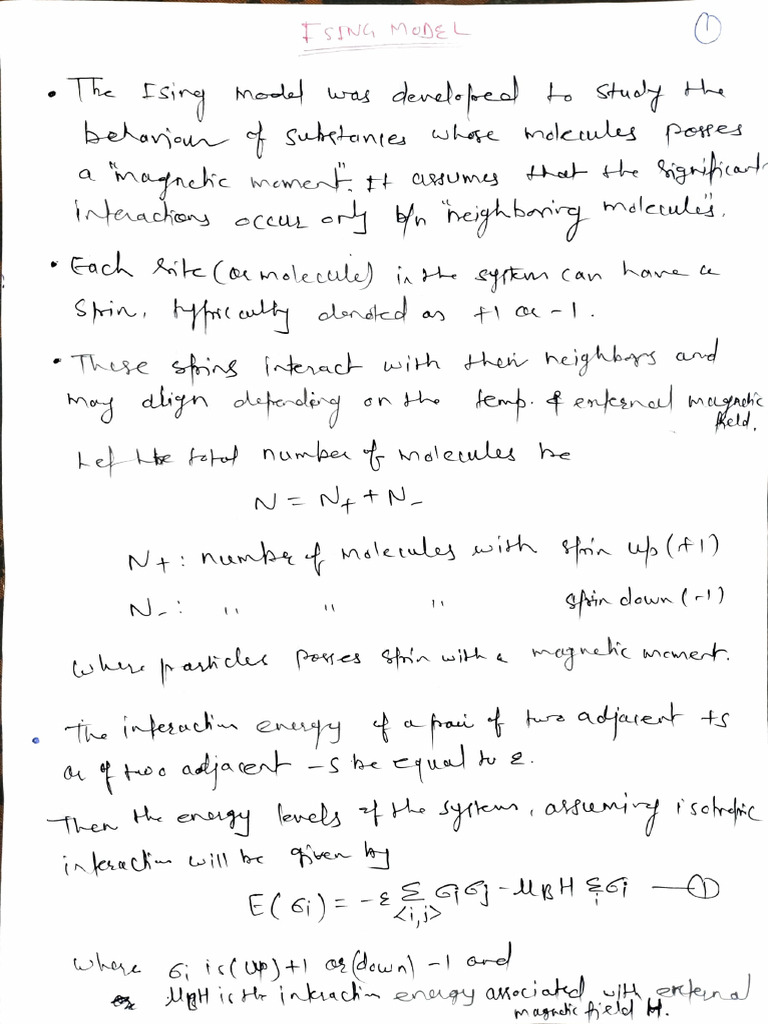 ISING MODEL
1
• The Ising model was developed to study the
behaviour of substances whose molecules posses
a "magnetic moment". It assumes that the significant
interactions occur only b/n "neighboring molecules".
• Each site (or molecule) in the system can have a
spin, typically denoted as +1 or -1.
• These spins interact with their neighbors and
may align depending on the temp. & external magnetic
field.
Let the total number of molecules be
N = N₊ + N₋
N₊ : number of molecules with spin up (+1)
N₋ : " " " spin down (-1)
where particles posses spin with a magnetic moment.
• The interaction energy of a pair of two adjacent +s
or of two adjacent -s be equal to ε.
Then the energy levels of the system, assuming isotropic
interaction will be given by
E(σi) = -ε Σ σiσj - μBH Σ σi — ①
<i,j> i
where σi is (up) +1 or (down) -1 and
μBH is the interaction energy associated with external
magnetic field H.